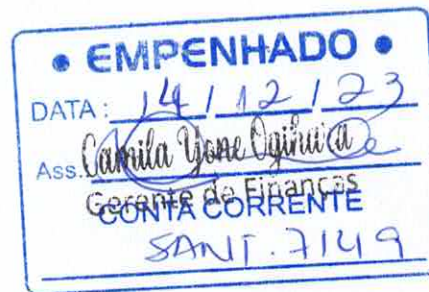 • EMPENHADO •
DATA: 14/12/23
Ass. Camila Yone Ogihara
Gerente de Finanças
CONTA CORRENTE
SANT. 7149